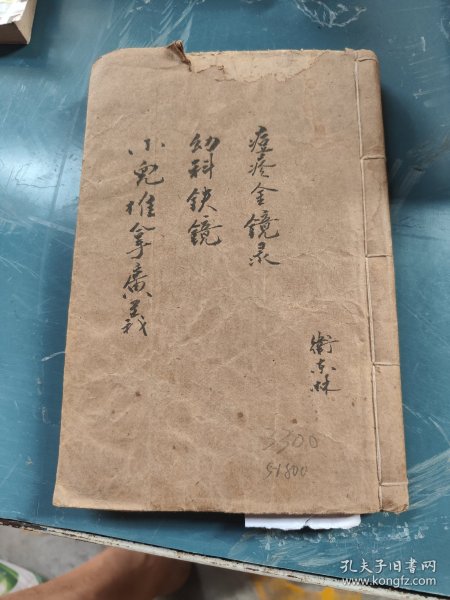 痘疹金镜录
幼科铁镜
小儿推拿廣義
衛东林
3300
51800
孔夫子旧书网
www.kongfz.com